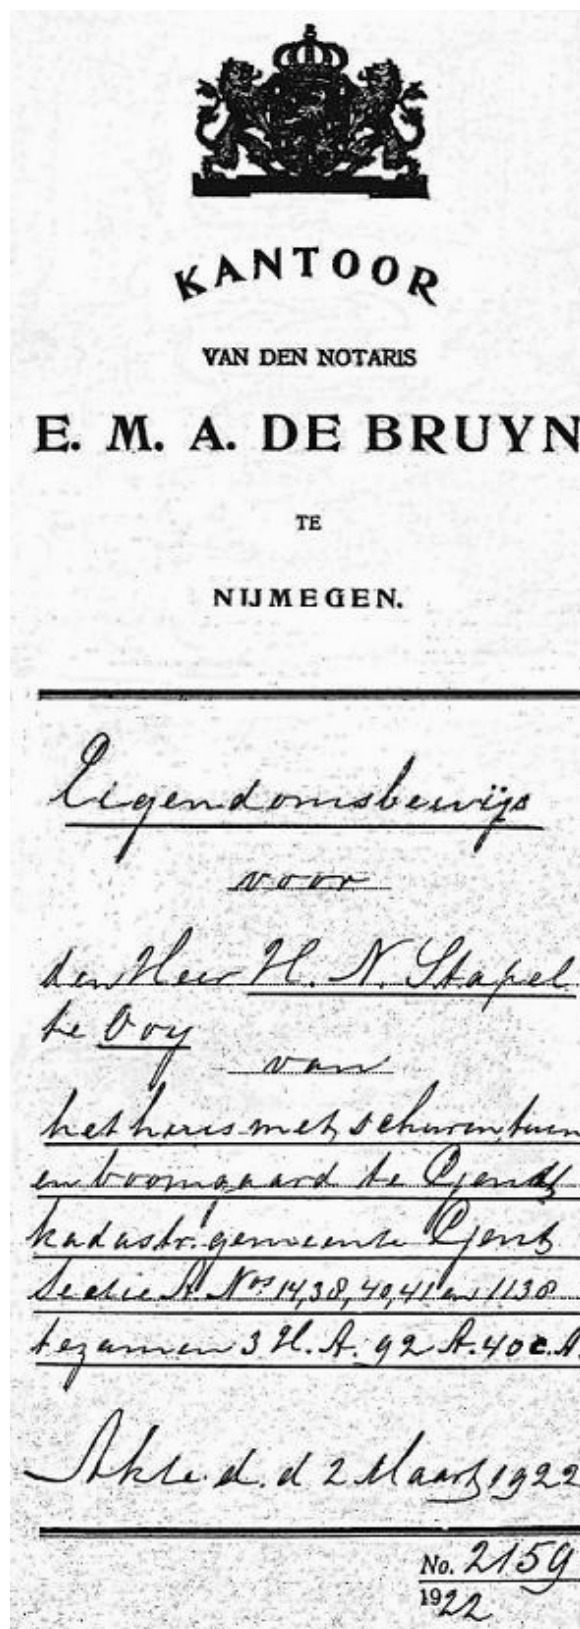 KANTOOR
VAN DEN NOTARIS
E. M. A. DE BRUYN
TE
NIJMEGEN.
Eigendomsbewijs
voor
den Heer H. N. Stapel
te Ooy
van
het huis met schuren, tuin
en boomgaard te Gendt
kadastr. gemeente Gent
Sectie A. Nos 14, 38, 40, 41 en 1138
tezamen 3 H. A. 92 A. 40 c. A.
Akte d. d 2 Maart 1922
No. 2159
1922